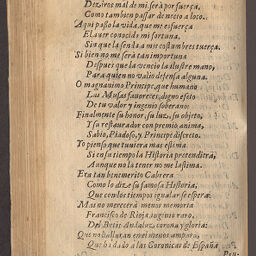 Deziros mal de mi será por fuerça,
Como tambien passar de necio a loco.
Aqui passo la vida, que me esfuerça
El auer conocido mi fortuna,
Sin que la senda a mis costumbres tuerça.
Si bien no me será tan importuna
Despues que la vencio la ilustre mano,
Para quien no valio defensa alguna.
O magnanimo Principe, que humano
Las Musas fauoreces, digno efeto
De tu valor y ingenio soberano:
Finalmente su honor, su luz, su objeto,
Y su restaurador con premio anima,
Sabio, Piadoso, y Principe discreto.
Yo pienso que tuuiera mas estima
Si cosa tiempo la Historia pretendiera,
Aunque no la tener no me lastima.
Era tan benemerito Cabrera
Como lo dize su famosa Historia,
Que con los tiempos igualar se espera:
Mas no merecerá menos memoria
Francisco de Rioja ingenio raro,
Del Betis Andaluz corona, y gloria:
Que no hallaran en el menos amparo
Que ha dado a las Coronicas de España